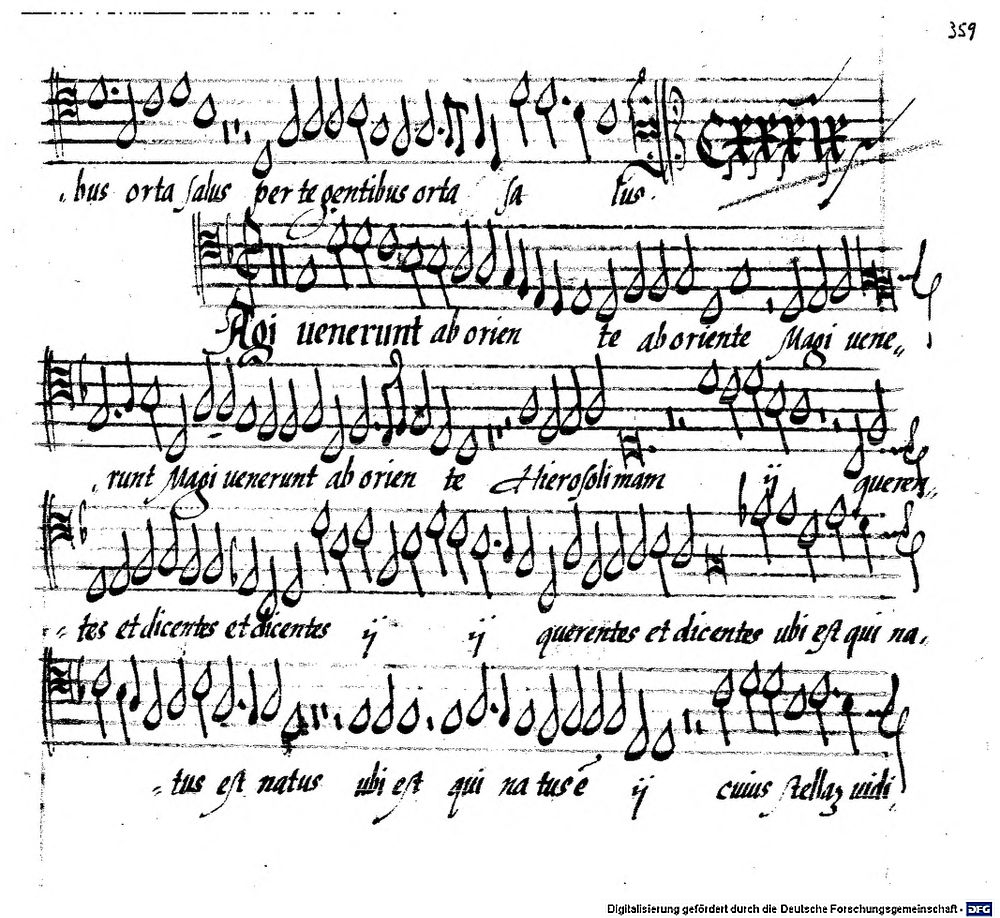 359
bus orta salus per te gentibus orta sa lus.
CXXXIX
Magi venerunt ab orien te ab oriente Magi vene„
runt Magi venerunt ab orien te Hierosolimam ij queren„
tes et dicentes et dicentes ij ij querentes et dicentes ubi est qui na„
tus est natus ubi est qui na tus ē ij cuius stellaʒ vidi
Digitalisierung gefördert durch die Deutsche Forschungsgemeinschaft - DFG